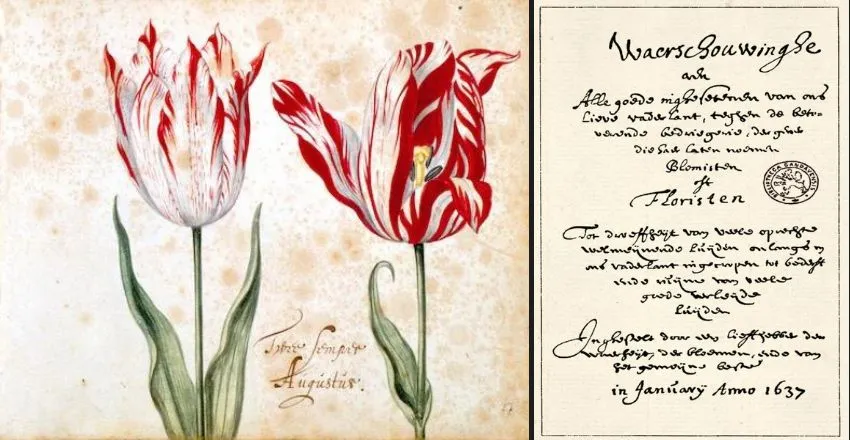 Twee Semper
Augustus.
Waerschouwinghe
aen
Alle goede inghesetenen van ons
lieve vaderlant, teghen de beto-
verende bedriegerie, der gene
die haer laten noemen
Blomisten
oft
Floristen
Tot droeffheijt van veele oprechte
welmeijnende luijden onlangs in
ons vaderlant ingecropen tot bederff
ende ruijne van veele
goede verleijde
luijden
In ghestelt door een lieffhebber der
waerheijt, der bloemen, ende van
het gemeijne beste
in Januarij Anno 1637